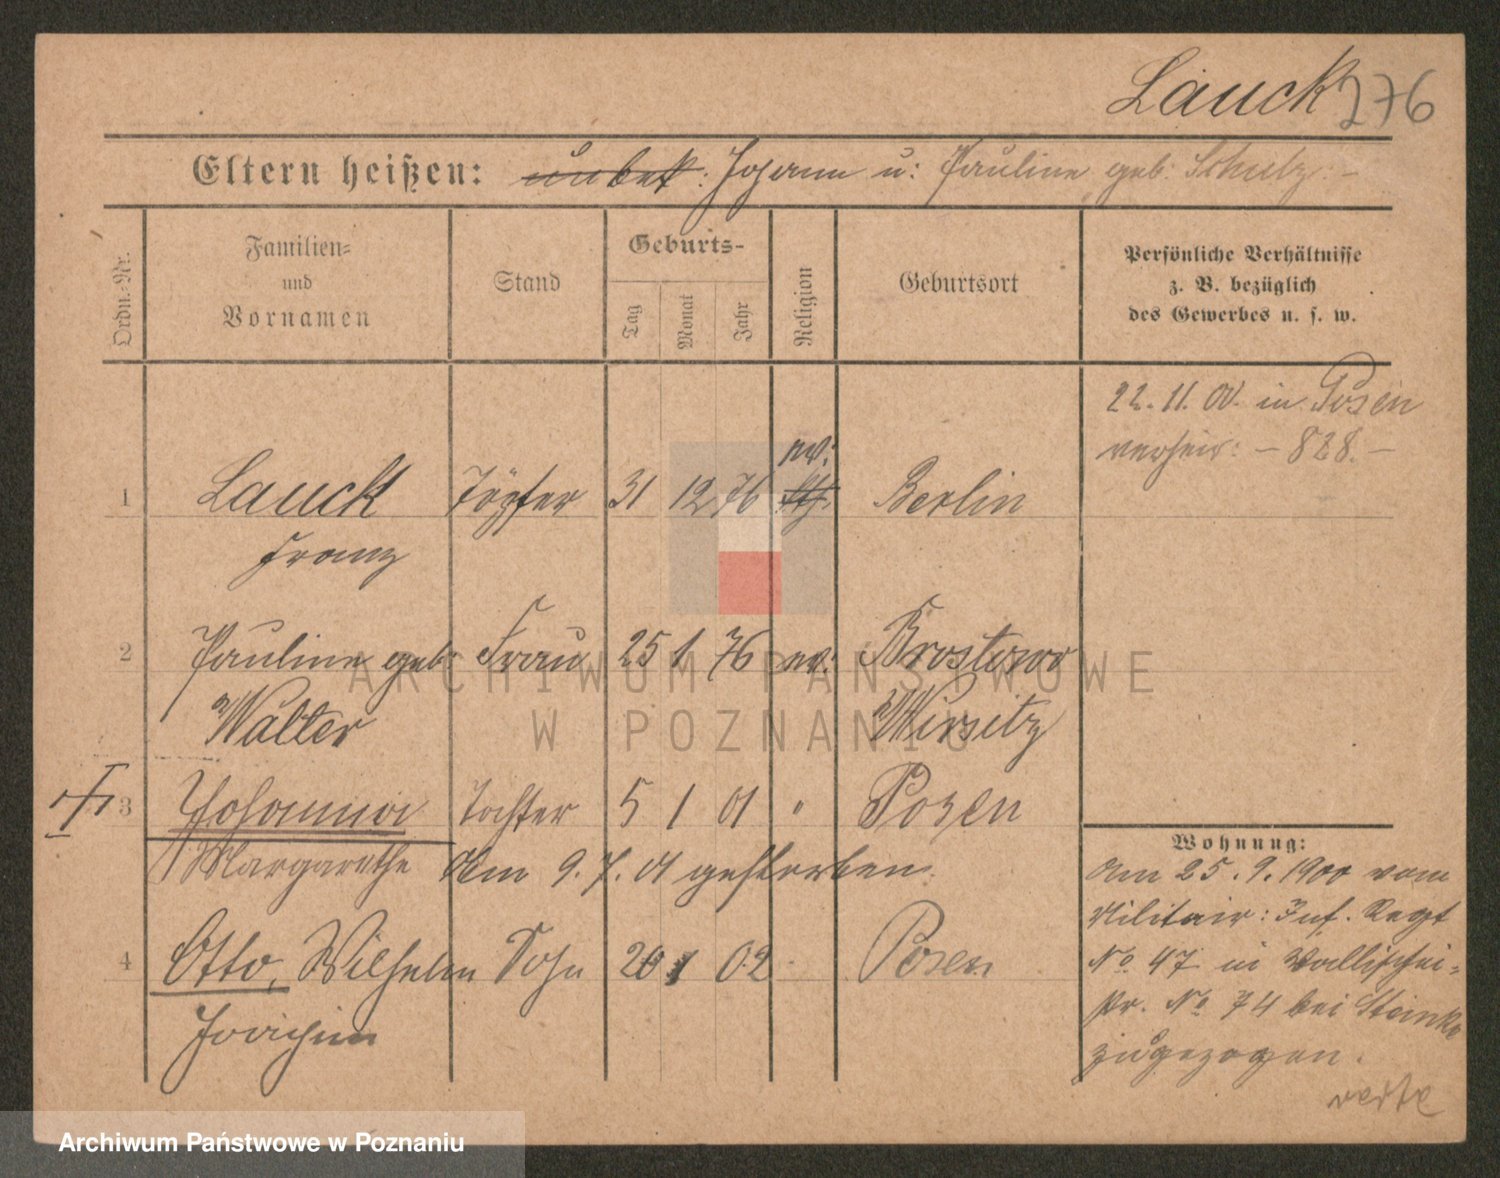 Lauck 276
Eltern heißen: unbek: Johann u: Pauline geb: Schulz.-
Ordn.-Nr.
Familien-
und
Vornamen
Stand
Geburts-
Tag
Monat
Jahr
Religion
Geburtsort
Persönliche Verhältnisse
z. B. bezüglich
des Gewerbes u. s. w.
22. 11. 00. in Posen
verheir: - 828. -
ev:
1 Lauck Töpfer 31 12 76 kth. Berlin
Franz
2 Pauline geb: Frau 25 1 76 ev: Brostowo
Walter Wirsitz
3 Johanna Tochter 5 1 01 " Posen
Margarethe Am 9. 7. 01 gestorben.
4 Otto, Wilhelm Sohn 26 1 02 Posen
Joachim
Wohnung:
Am 25. 9. 1900 vom
Militair: Inf. Regt
No 47 in Wallischei-
Str. No 74 bei Steinke
zugezogen.
verte
ARCHIWUM PAŃSTWOWE
W POZNANIU
Archiwum Państwowe w Poznaniu